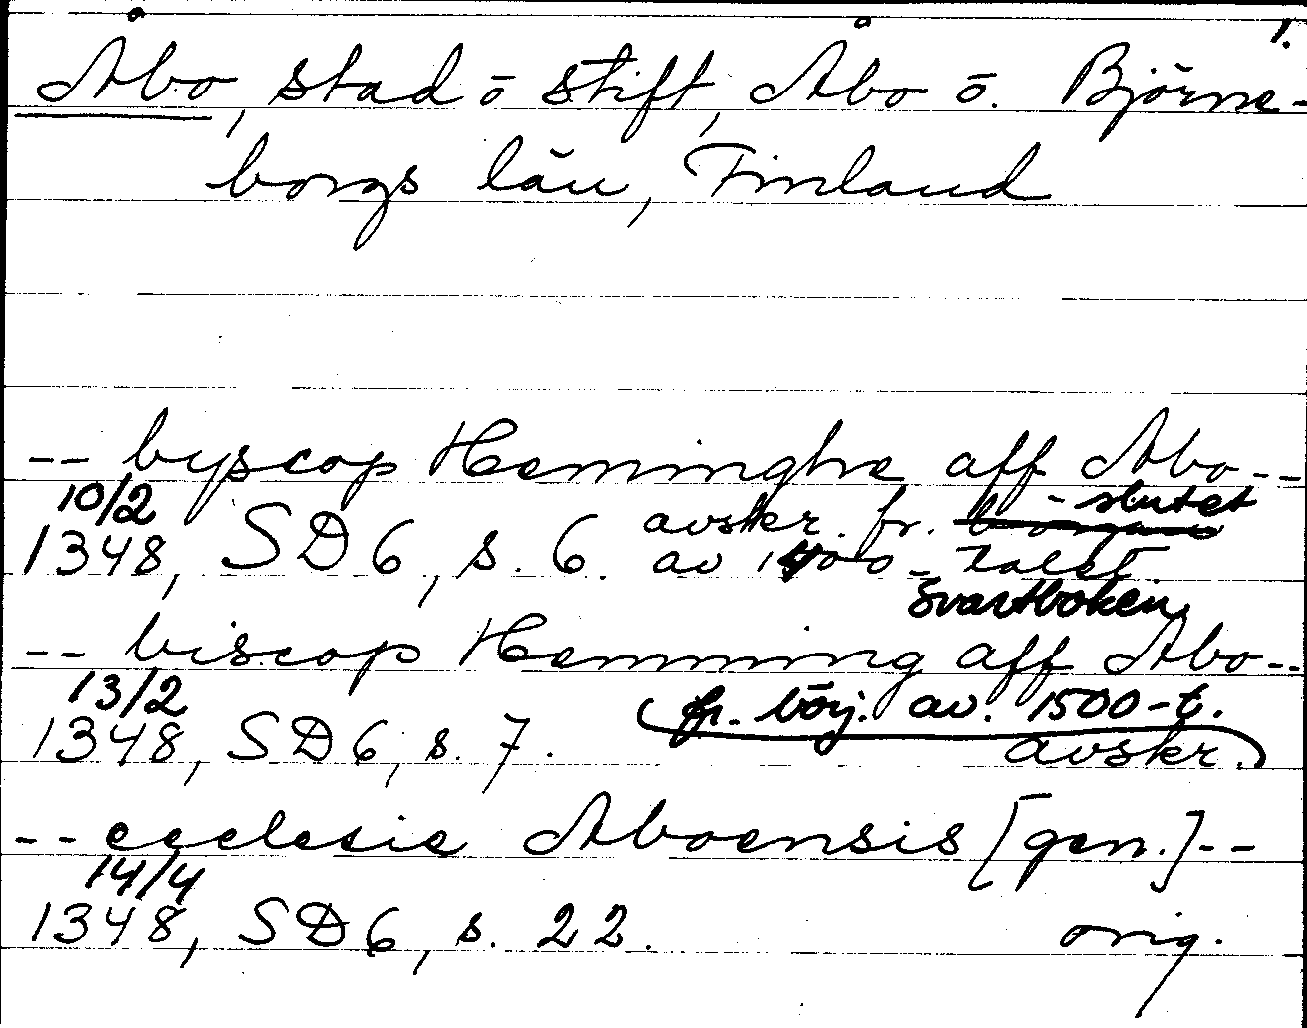 1.
Åbo, stad o stift, Åbo o. Björne-
borgs län, Finland
-- byscop Heminghe aff Abo--
10/2 - slutet
1348, SD 6, s. 6. avskr. fr.
av 1400-talet
Svartboken
-- biscop Hemming aff Abo--
13/2 fr. börj. av. 1500-t.
1348, SD 6, s. 7. avskr.
-- ecclesie Aboensis [gen.]--
14/4
1348, SD 6, s. 22. orig.